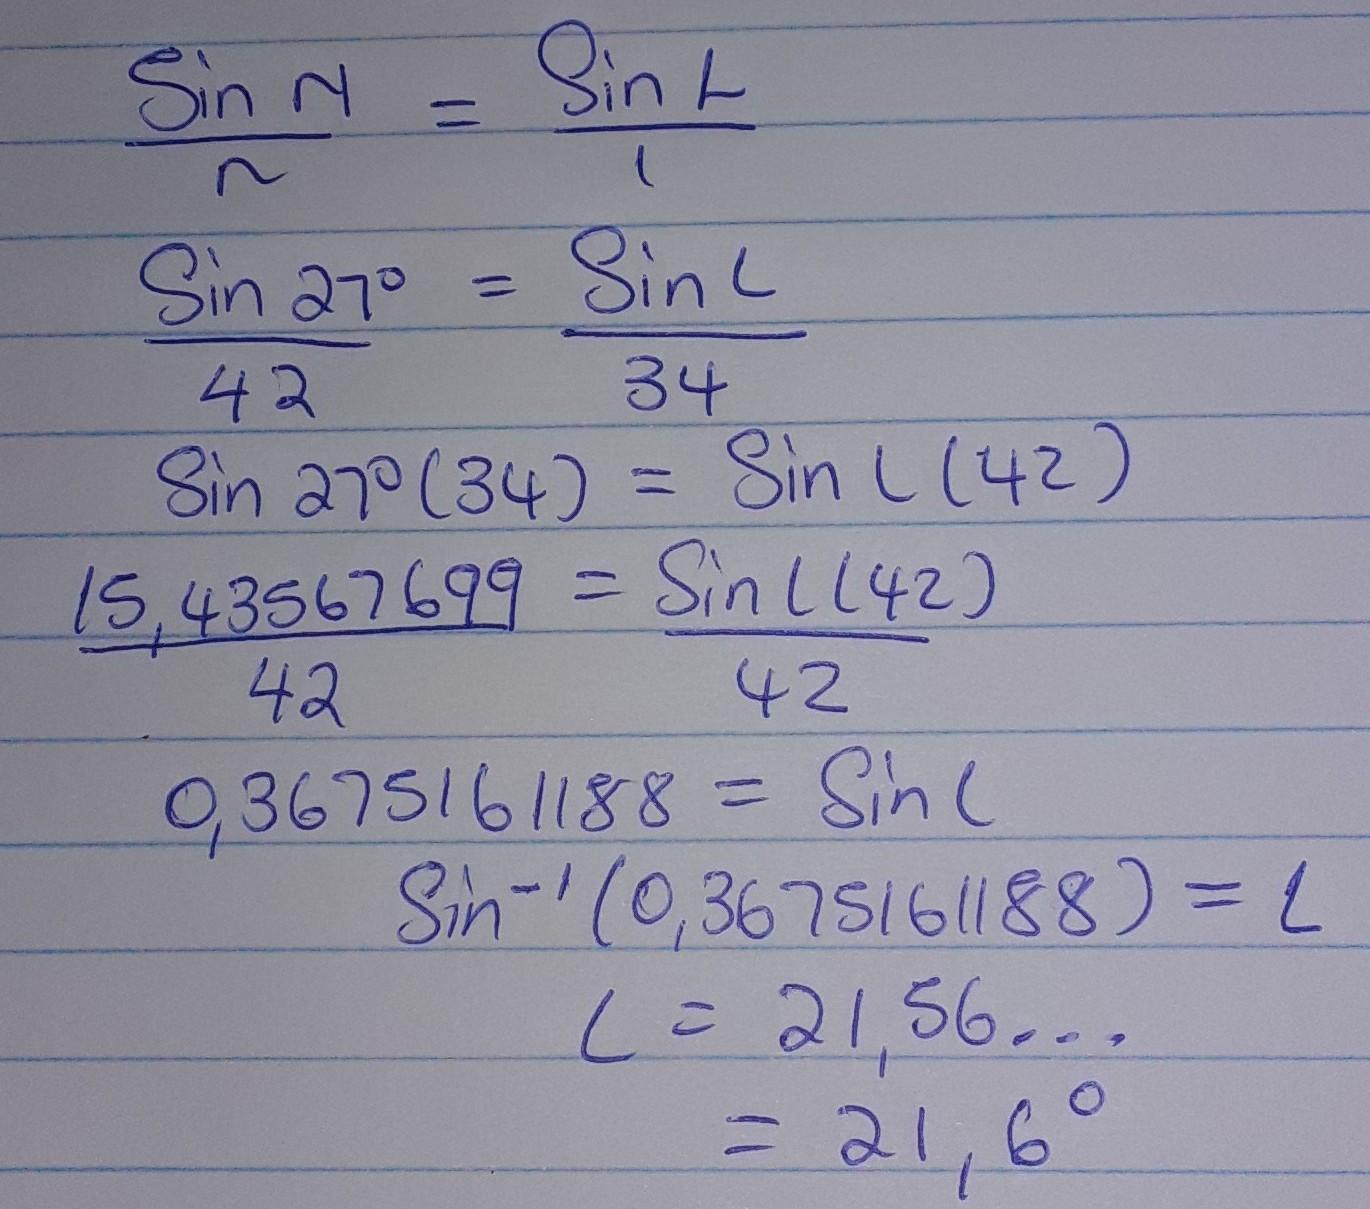 Sin N = Sin L
n l
Sin 27° = Sin L
42 34
Sin 27° (34) = Sin L (42)
15,43567699 = Sin L (42)
42 42
0,3675161188 = Sin L
Sin⁻¹ (0,3675161188) = L
L = 21,56...
= 21,6°